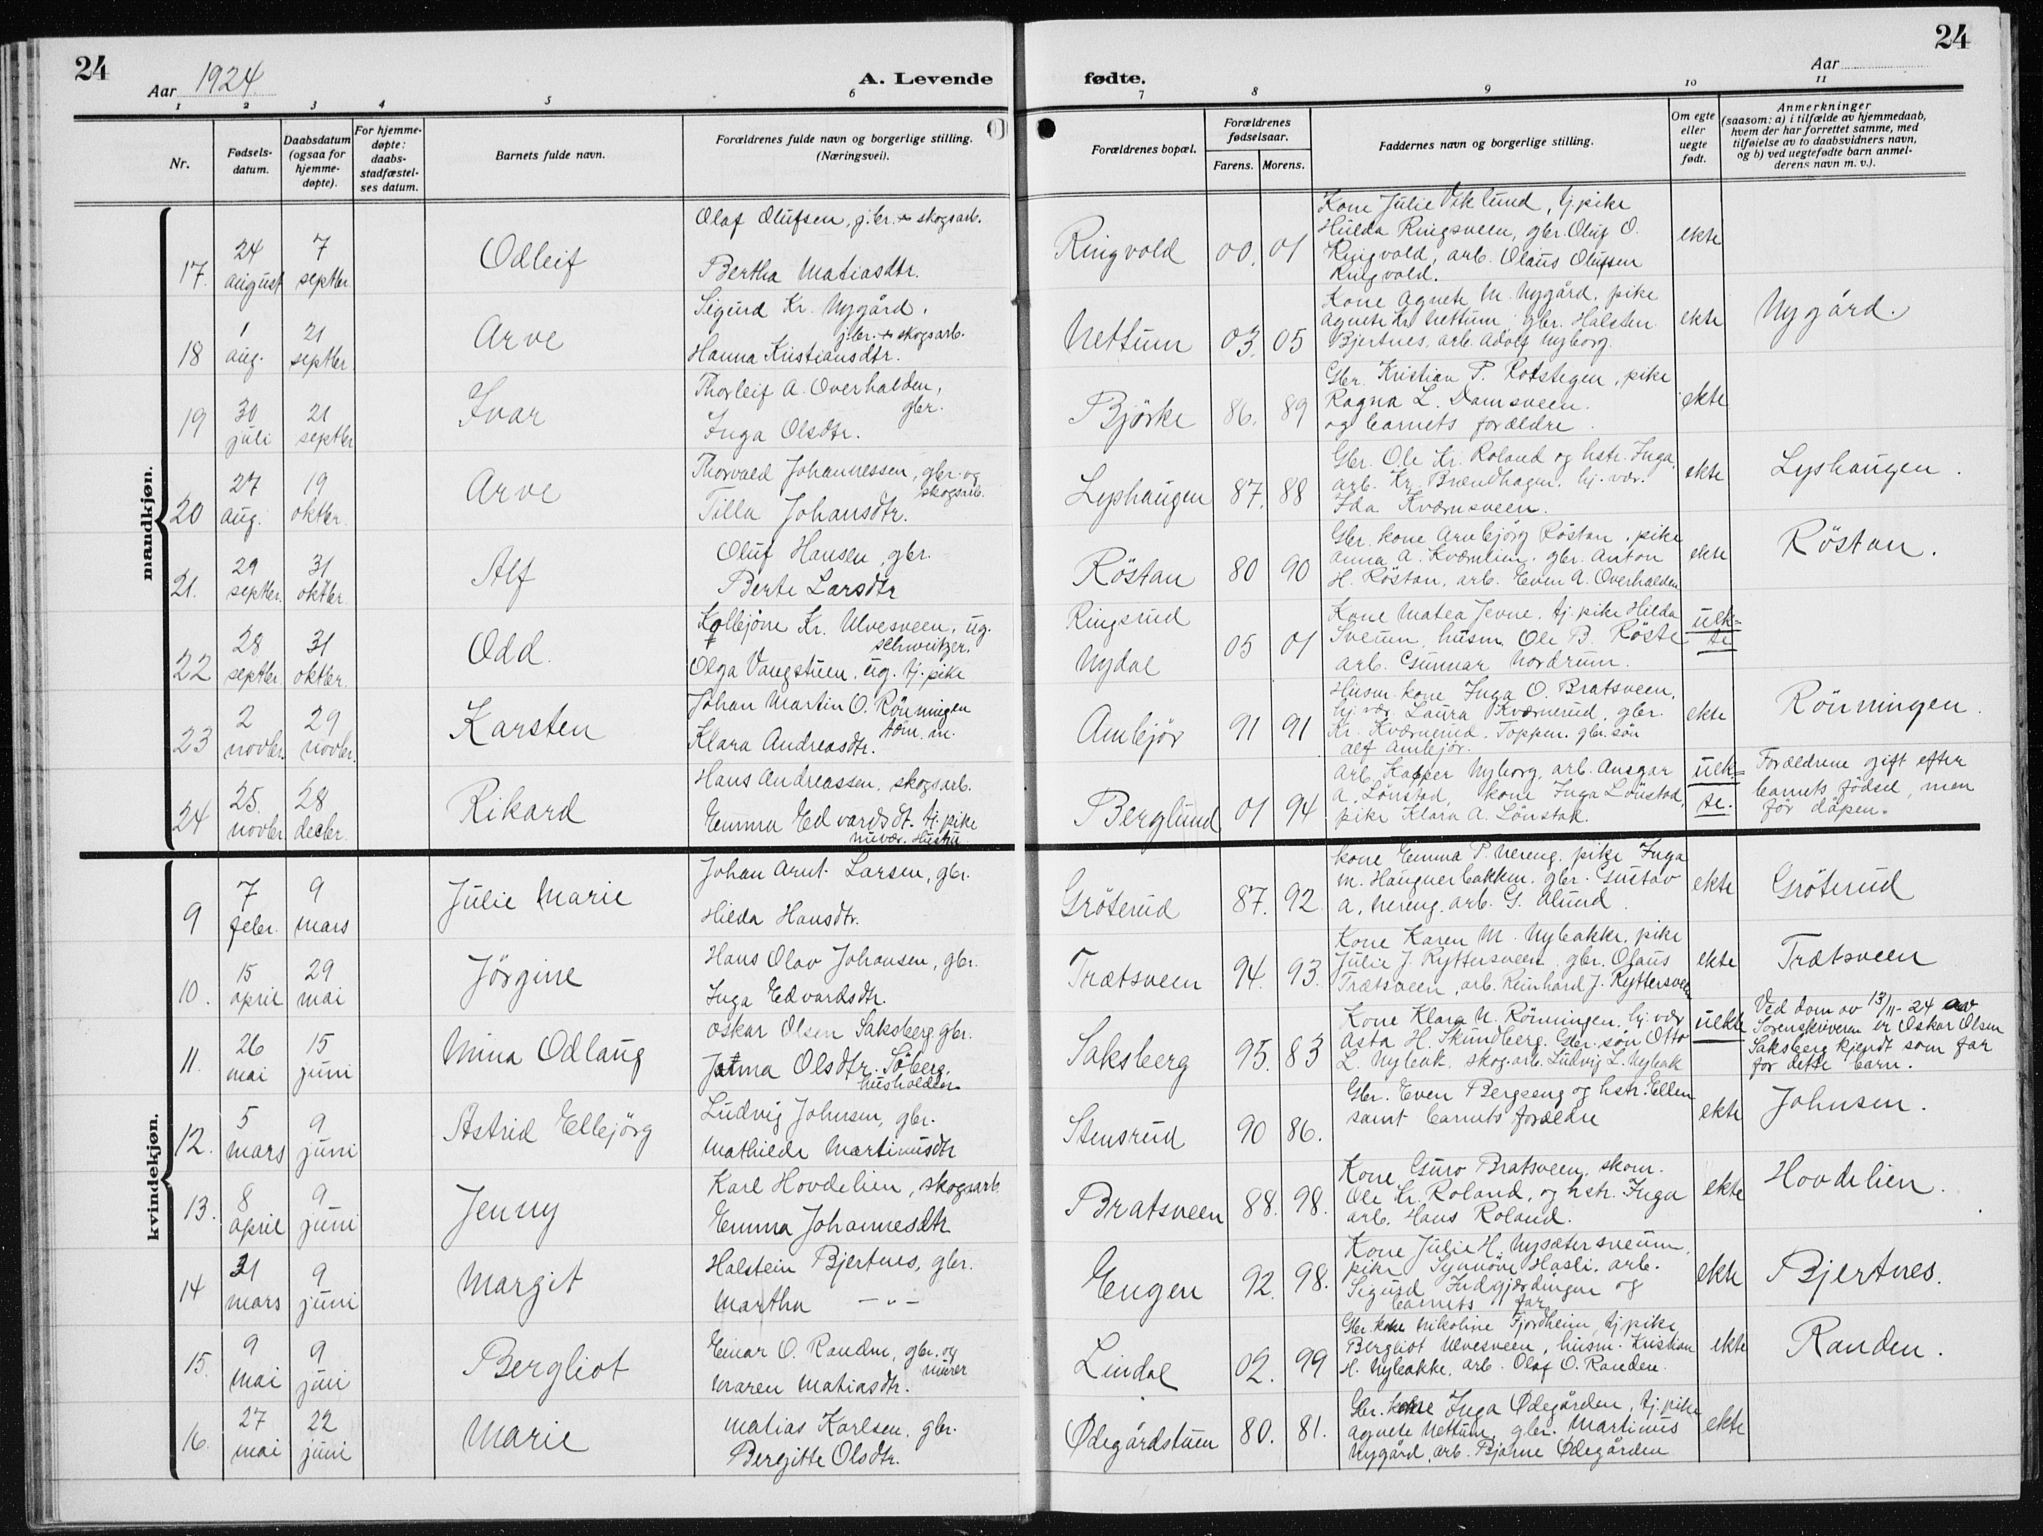 24
Aar 1924.
A. Levende
fødte.
Aar
24
1 2 3 4 5 6 7 8 9 10 11
Nr.
Fødsels-
datum.
Daabsdatum
(ogsaa for
hjemme-
døpte).
For hjemme-
døpte:
daabs-
stadfæstel-
ses datum.
Barnets fulde navn.
Forældrenes fulde navn og borgerlige stilling.
(Næringsvei).
Forældrenes bopæl.
Forældrenes
fødselsaar.
Farens. Morens.
Faddernes navn og borgerlige stilling.
Om egte
eller
uegte
født.
Anmerkninger
(saasom: a) i tilfælde av hjemmedaab,
hvem der har forrettet samme, med
tilføielse av to daabsvidners navn,
og b) ved uegtefødte barn anmel-
derens navn m. v.).
mandkjøn.
17.
24
august
7
septbr.
Odleif
Olaf Olufsen, gbr. + skogsarb.
Bertha Matiasdtr.
Ringvold
00. 01
Kone Julie Viklund, tj. pike
Hulda Ringsveen, gbr. Oluf O.
Ringvold, arb. Olaus Olufsen
Ringvold.
ekte
18
1
aug.
21
septbr.
Arve
Sigurd Kr. Nygård,
gbr. + skogsarb.
Hanna Kristiansdtr.
Nettum
03. 05
Kone Agnete M. Nygård, pike
Agnete Kr. Nettum gbr. Halsten
Bjertnes, arb. Adolf Nyborg.
ekte
Nygård.
19
30
juli
21
septbr
Ivar
Thorleif A. Overhalden,
gbr.
Inga Olsdtr.
Björke
86. 89
Gbr. Kristian P. Rotstegen, pike
Ragna L. Damsveen.
og barnets forældre.
ekte
20
27
aug.
19
oktbr.
Arve
Thorvald Johannessen, gbr. og
skogsarb.
Tilla Johansdtr.
Lyshaugen
87. 88
Gbr. Ole Kr. Roland og hstr. Inga,
arb. Kr. Brændhagen. hj. vær.
Ida Kværnsveen.
ekte
Lyshaugen.
21.
29
septbr.
31
oktbr.
Alf
Oluf Hansen, gbr.
Berte Larsdtr
Röstan
80 90
Gbr. kone Arnbjörg Röstan, pike
Anna A. Kværnlien. gbr. Anton
H. Röstan, arb. Even A. Overhalden
ekte
Röstan.
22
28
septbr.
31
oktbr.
Odd.
Kolbjörn Kr. Ulvesveen, ug.
schweitzer.
Olga Vangstuen, ug. tj. pike
Ringsrud
Nydal
05 01
Kone Matea Jevne, tj. pike Hilda
Sveum, husm. Ole B. Röste
arb. Gunnar Nordrum.
uek-
te
23
2
novbr.
29
novbr.
Karsten
Johan Martin O. Rönningen
töm. an.
Klara Andreasdtr.
Ambjör
91 91
Husm. kone Inga O. Bratsveen,
hj. vær. Laura Kværnerud, gbr.
Kr. Kværnerud. Toppen. gbr. sön
Alf Ambjör.
ekte
Rönningen.
24
25.
novbr.
28
decbr.
Rikard
Hans Andreassen, skogsarb.
Emma Edvardsdt. tj. pike
nuvær. Hustru
Berglund
01 94
Arb. Kasper Nyborg, arb. Ansgar
A. Lönstad, kone Inga Lönstad,
pike Klara A. Lönstad.
uek-
te.
Forældrene gift efter
barnets födsel, men
för dåpen.
kvindekjøn.
9
7
febr.
9
mars
Julie Marie
Johan Arnt Larsen, gbr.
Hilda Hansdtr.
Gröterud
87. 92
Kone Emma P. Nereng. pike Inga
M. Haugnerbakken. gbr. Gustav
A. Nereng. arb. G. Alund.
ekte
Gröterud
10.
15
april
29
mai
Jörgine
Hans Olav Johansen, gbr.
Inga Edvardsdtr.
Trætsveen
94. 93.
Kone Karen M. Nybakke, pike
Julie J. Ryttersveen. gbr. Olaus
Trætsveen, arb. Reinhard J. Ryttersveen
ekte
Trætsveen
11.
26
mai
15
juni
Mina Odlaug
Oskar Olsen Saksberg gbr.
Jatma Olsdtr. Söberg,
husholder
Saksberg
95. 83
Kone Klara N. Rönningen, hj. vær
Asta H. Skundberg. Gbr. sön Otto
L. Nybak. skog.arb. Ludvig L. Nybak
uekte
Ved dom av 13/11-24 av
Sorenskriveren er Oskar Olsen
Saksberg kjendt som far
for dette barn.
12.
5
mars
9
juni
Astrid Ellbjörg
Ludvig Johnsen, gbr.
Mathilde Martinusdtr
Stensrud
90 86.
Gbr. Even Bergseng og hstr. Ellen
samt barnets forældre
ekte
Johnsen.
13.
8
april
9
juni
Jenny
Karl Hovdelien, skogsarb.
Emma Johannesdtr
Bratsveen
88. 98.
Kone Guro Bratsveen, skom.
Ole Kr. Roland, og hstr. Inga
arb. Hans Roland.
ekte
Hovdelien.
14
31
mars
9
juni
Margit
Halstein Bjertnes, gbr.
Martha — " —
Engen
92. 98.
Kone Julie H. Nysætersveum,
pike Synnöve Hasli, arb.
Sigurd Indgjærdingen og
barnets far
ekte
Bjertnes.
15.
9
mai
9
juni
Bergliot
Einar O. Randen, gbr. og
murer
Maren Matiasdtr.
Lindal
02. 99
Gbr. kone Nikoline Fjordheim, tj. pike
Bergliot Ulvesveen, husm. Kristian
H. Nybakke, arb. Olaf O. Randen.
ekte
Randen.
16.
27
mai
22
juni
Marie
Matias Karlsen, gbr.
Bergitte Olsdtr.
Ødegårdstuen
80. 81.
Gbr. kone Inga Ødegården, tj. pike
Agnete Nettum, gbr. Martinus
Nygård, arb. Bjarne Ødegården
ekte